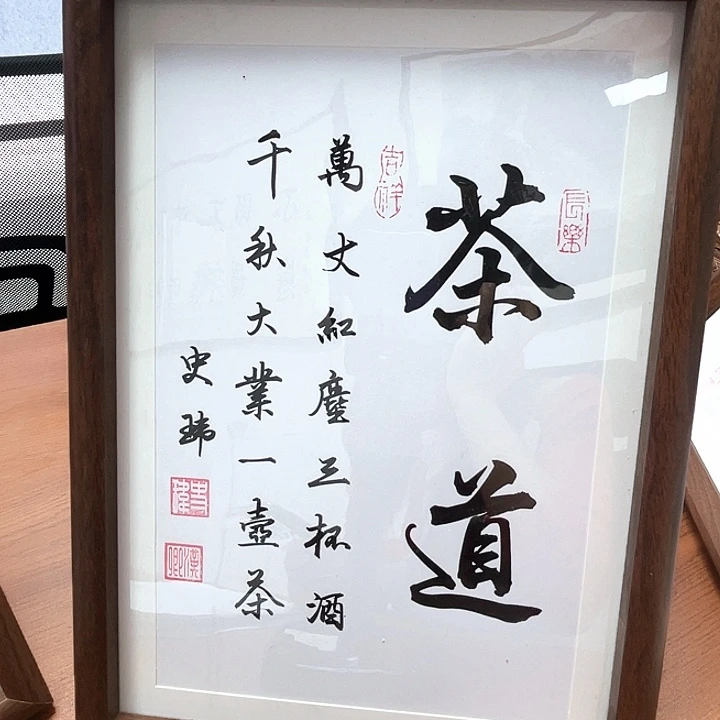 長樂
茶道
吉祥
萬丈紅塵三杯酒
千秋大業一壺茶
史瑋